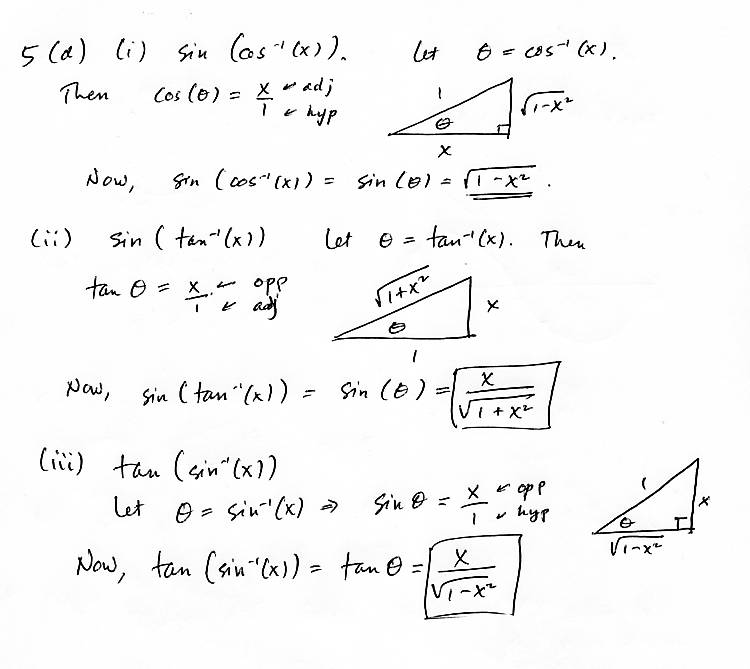 5 (d) (i) sin (cos⁻¹(x)). Let θ = cos⁻¹(x).
Then cos(θ) = x/1 ← adj ← hyp
1 √1-x² θ x
Now, sin (cos⁻¹(x)) = sin(θ) = √1-x².
(ii) sin (tan⁻¹(x)) Let θ = tan⁻¹(x). Then
tan θ = x/1 ← opp ← adj
√1+x² x θ 1
Now, sin (tan⁻¹(x)) = sin(θ) = x/√1+x²
(iii) tan (sin⁻¹(x))
Let θ = sin⁻¹(x) ⇒ sin θ = x/1 ← opp ← hyp
1 x θ √1-x²
Now, tan (sin⁻¹(x)) = tan θ = x/√1-x²